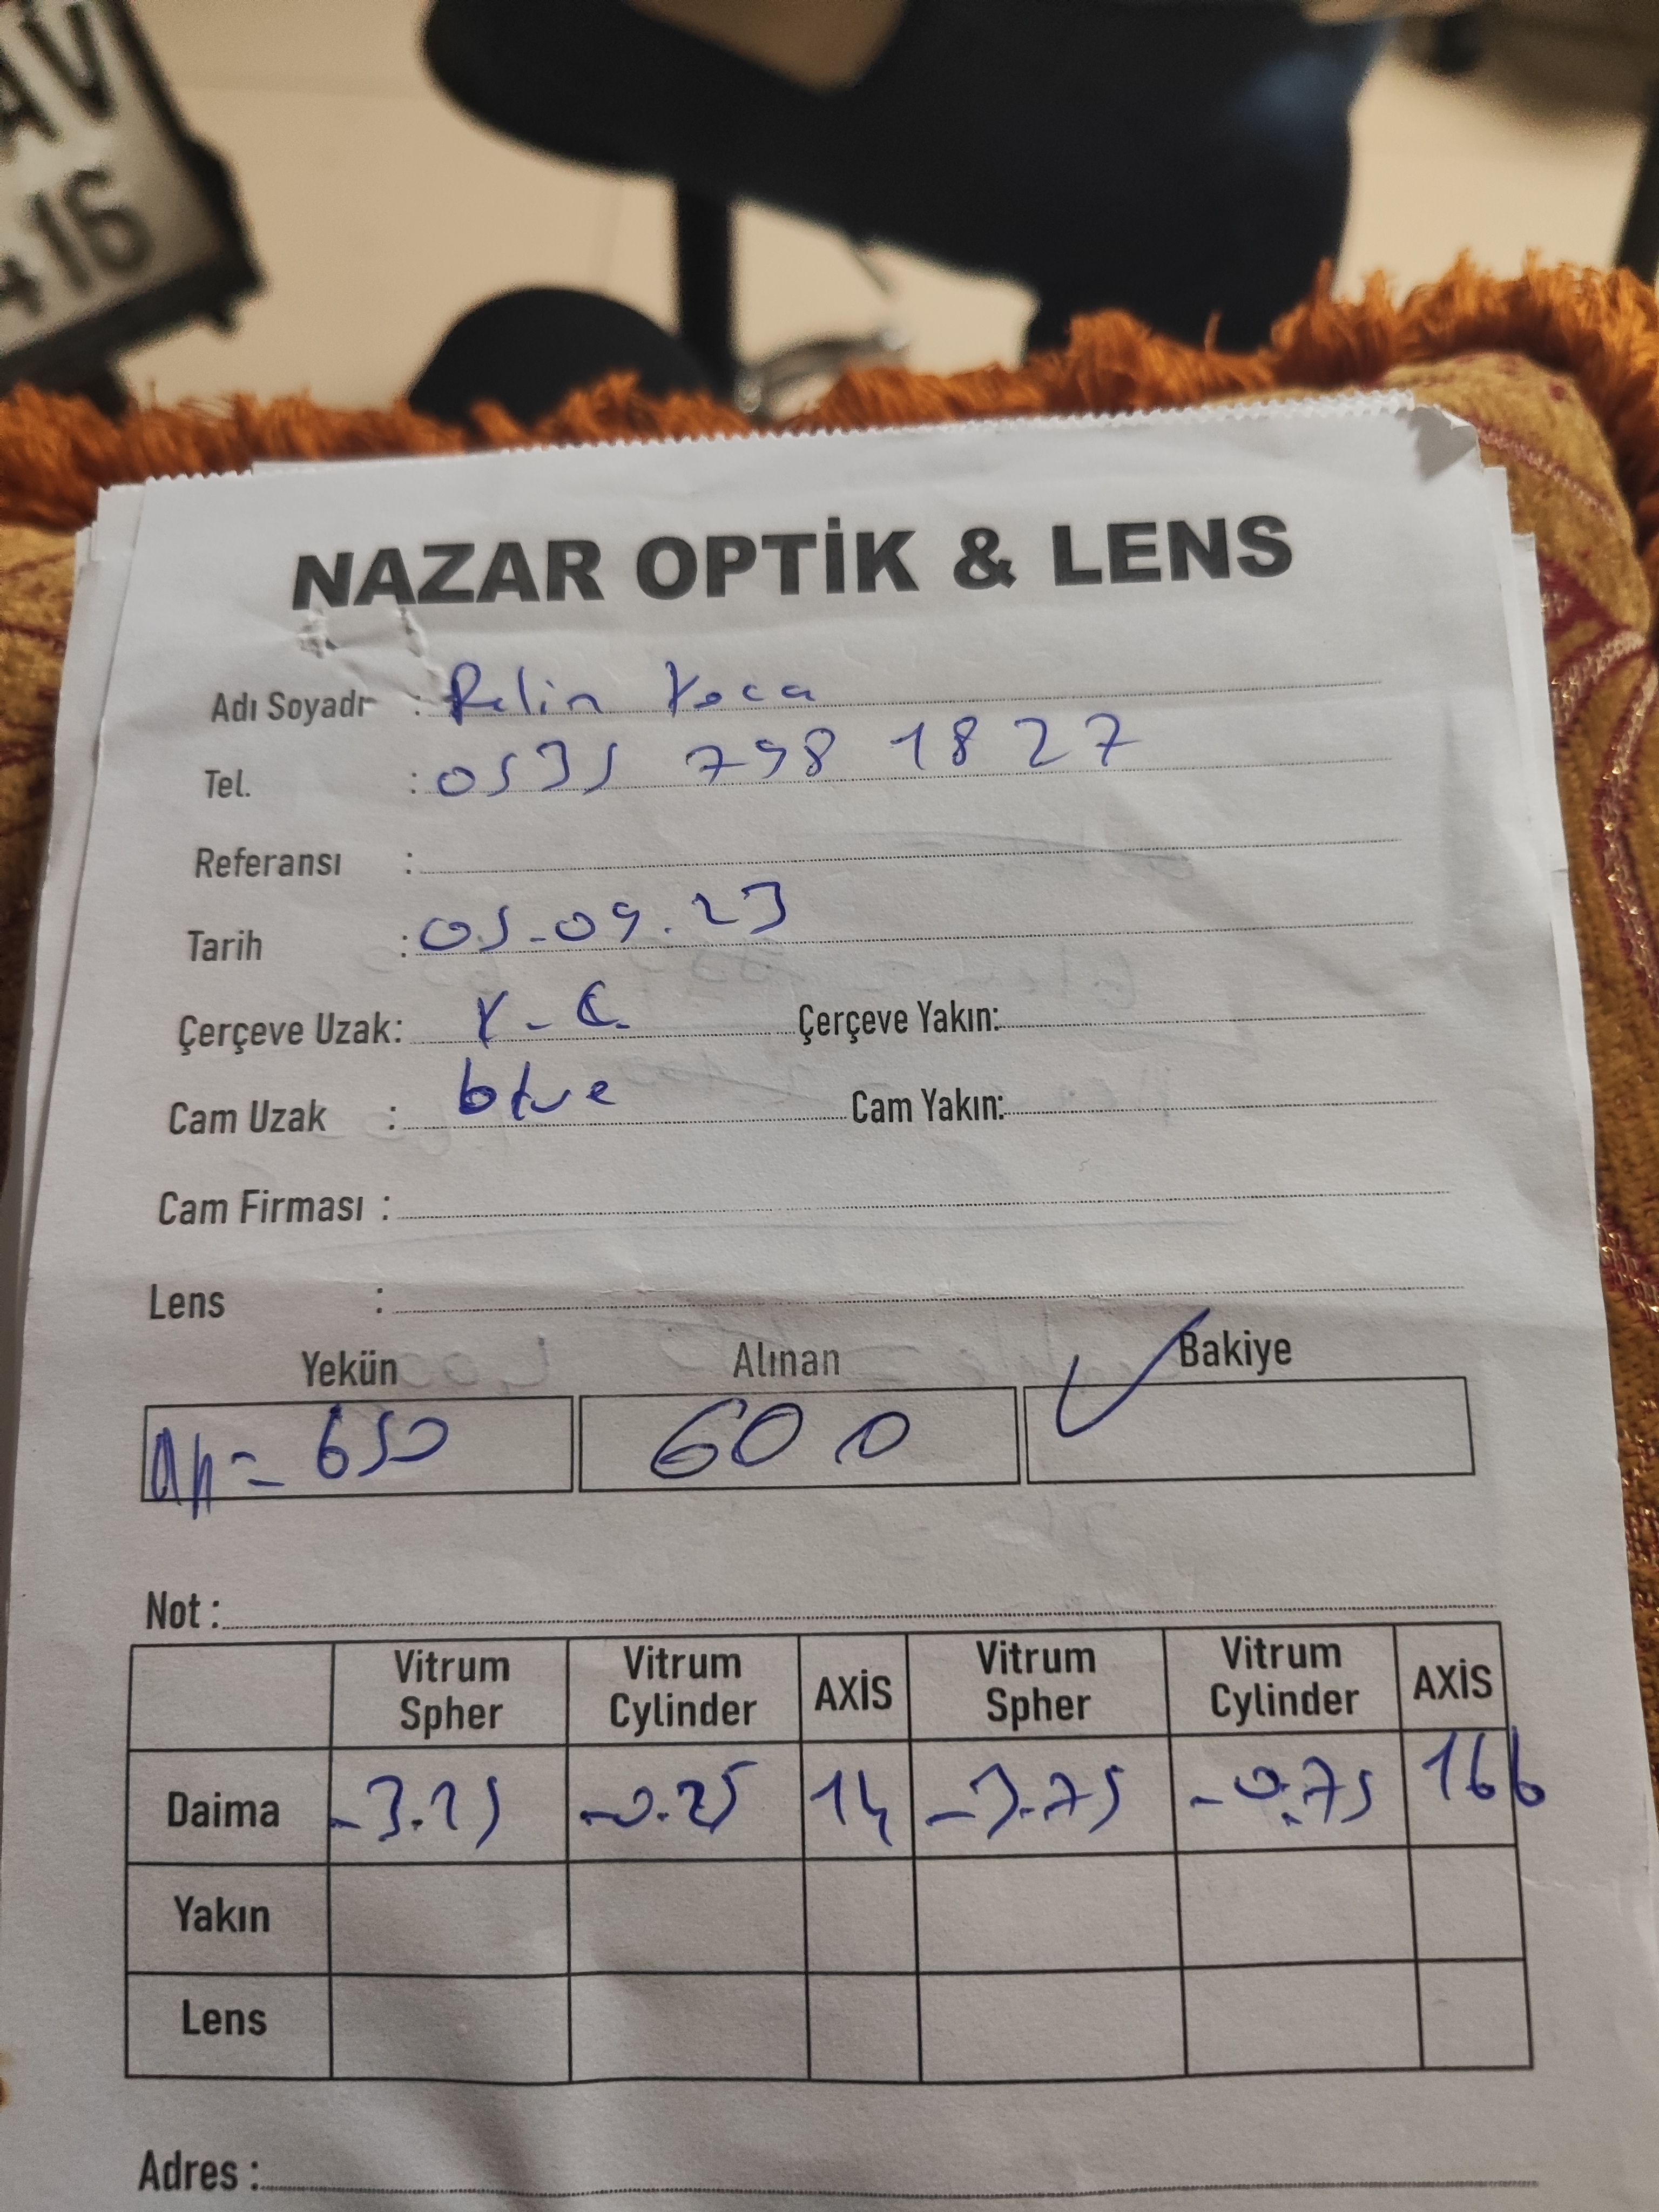 AV
416
NAZAR OPTİK & LENS
Adı Soyadı : Pelin Koca
Tel. : 0535 798 1827
Referansı :
Tarih : 05.09.23
Çerçeve Uzak: K-Ç Çerçeve Yakın:
Cam Uzak : blue Cam Yakın:
Cam Firması :
Lens :
Yekün Alınan Bakiye
= 650 600 ✓
Not :
Vitrum Spher Vitrum Cylinder AXİS Vitrum Spher Vitrum Cylinder AXİS
Daima -3.25 -0.25 14 -3.75 -0.75 166
Yakın
Lens
Adres :